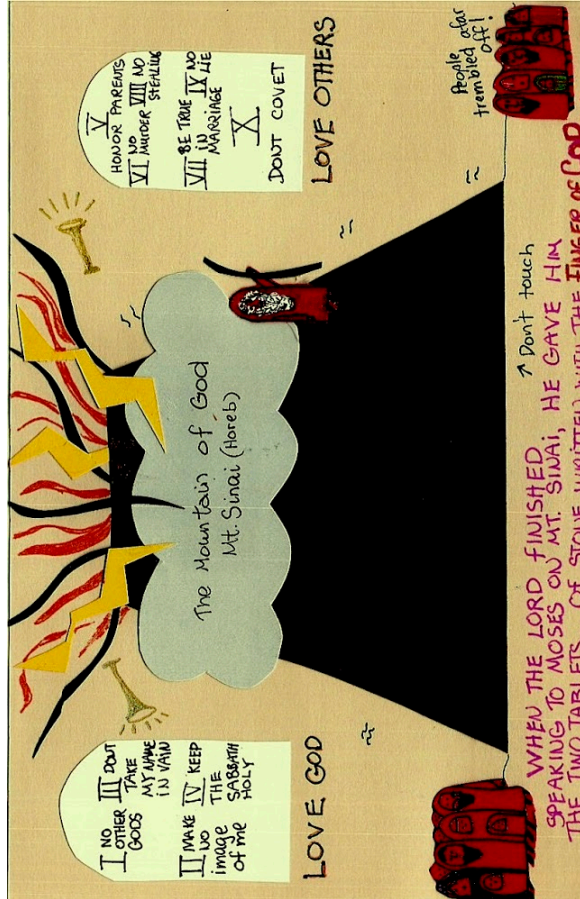 I NO
OTHER
GODS
II MAKE
NO
image
of me
III DONT
TAKE
MY NAME
IN VAIN
IV KEEP
THE
SABBATH
HOLY
LOVE GOD
The Mountain of God
Mt. Sinai (Horeb)
V
HONOR PARENTS
VI NO
MURDER
VIII NO
STEALING
VII BE TRUE
IN
MARRIAGE
IV NO
LIE
X
DONT COVET
LOVE OTHERS
People
trembled afar
off!
↗ Don't touch
WHEN THE LORD FINISHED
SPEAKING TO MOSES ON MT. SINAI, HE GAVE HIM
THE TWO TABLETS OF STONE WRITTEN WITH THE FINGER OF GOD